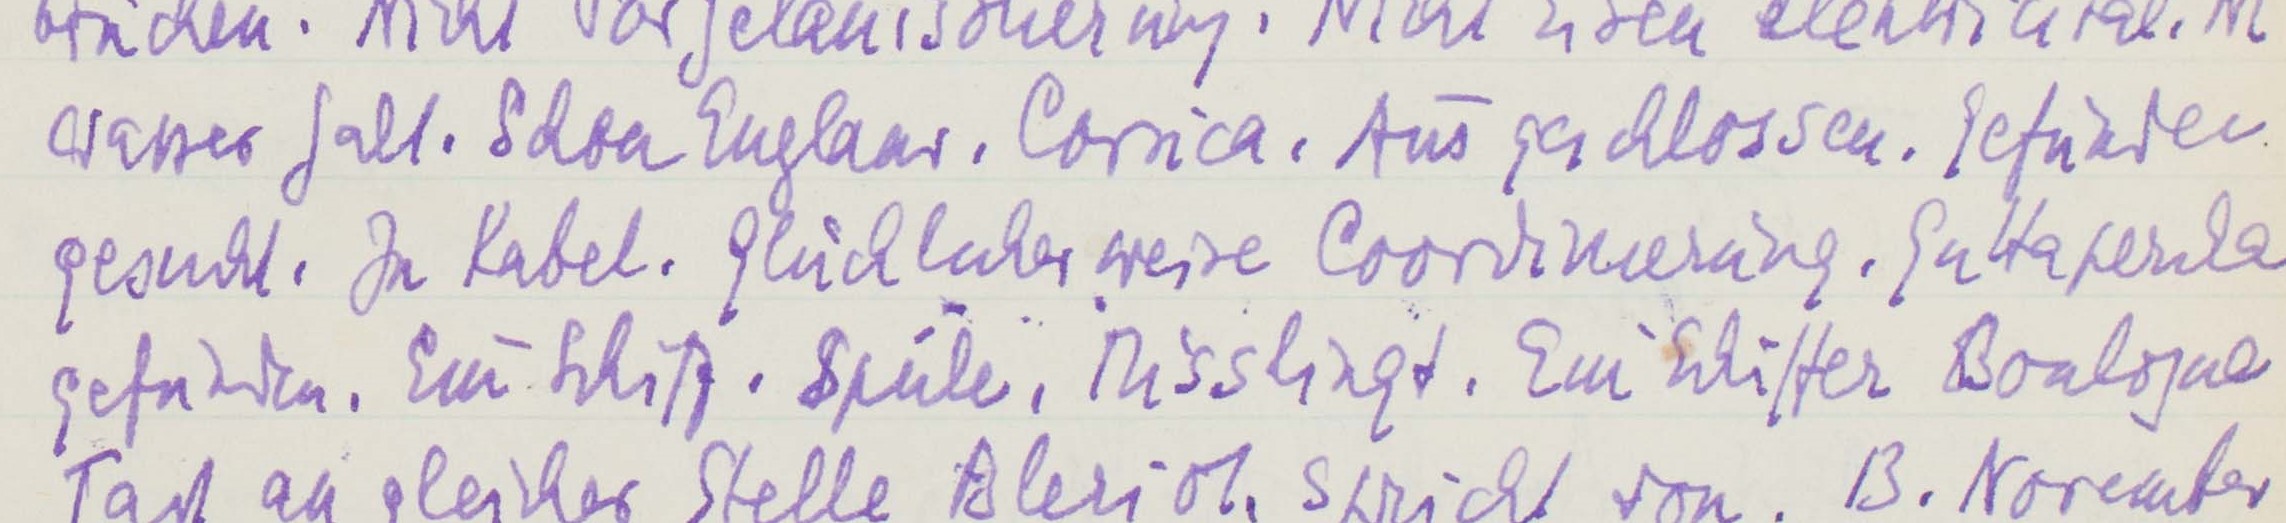 brücken. Nicht vorgelauischerung. Nicht in den
Wasser galt. Schon England. Corsica. Ausgeschlossen. Gefunden
gesucht. In Kabel. Glücklicherweise Coordinierung. Guttapercha
gefunden. Ein Schiff. Spule. Misslingt. Ein Schiffer Boulogne
Tag an gleicher Stelle Bleriot. Spricht von. 13. November